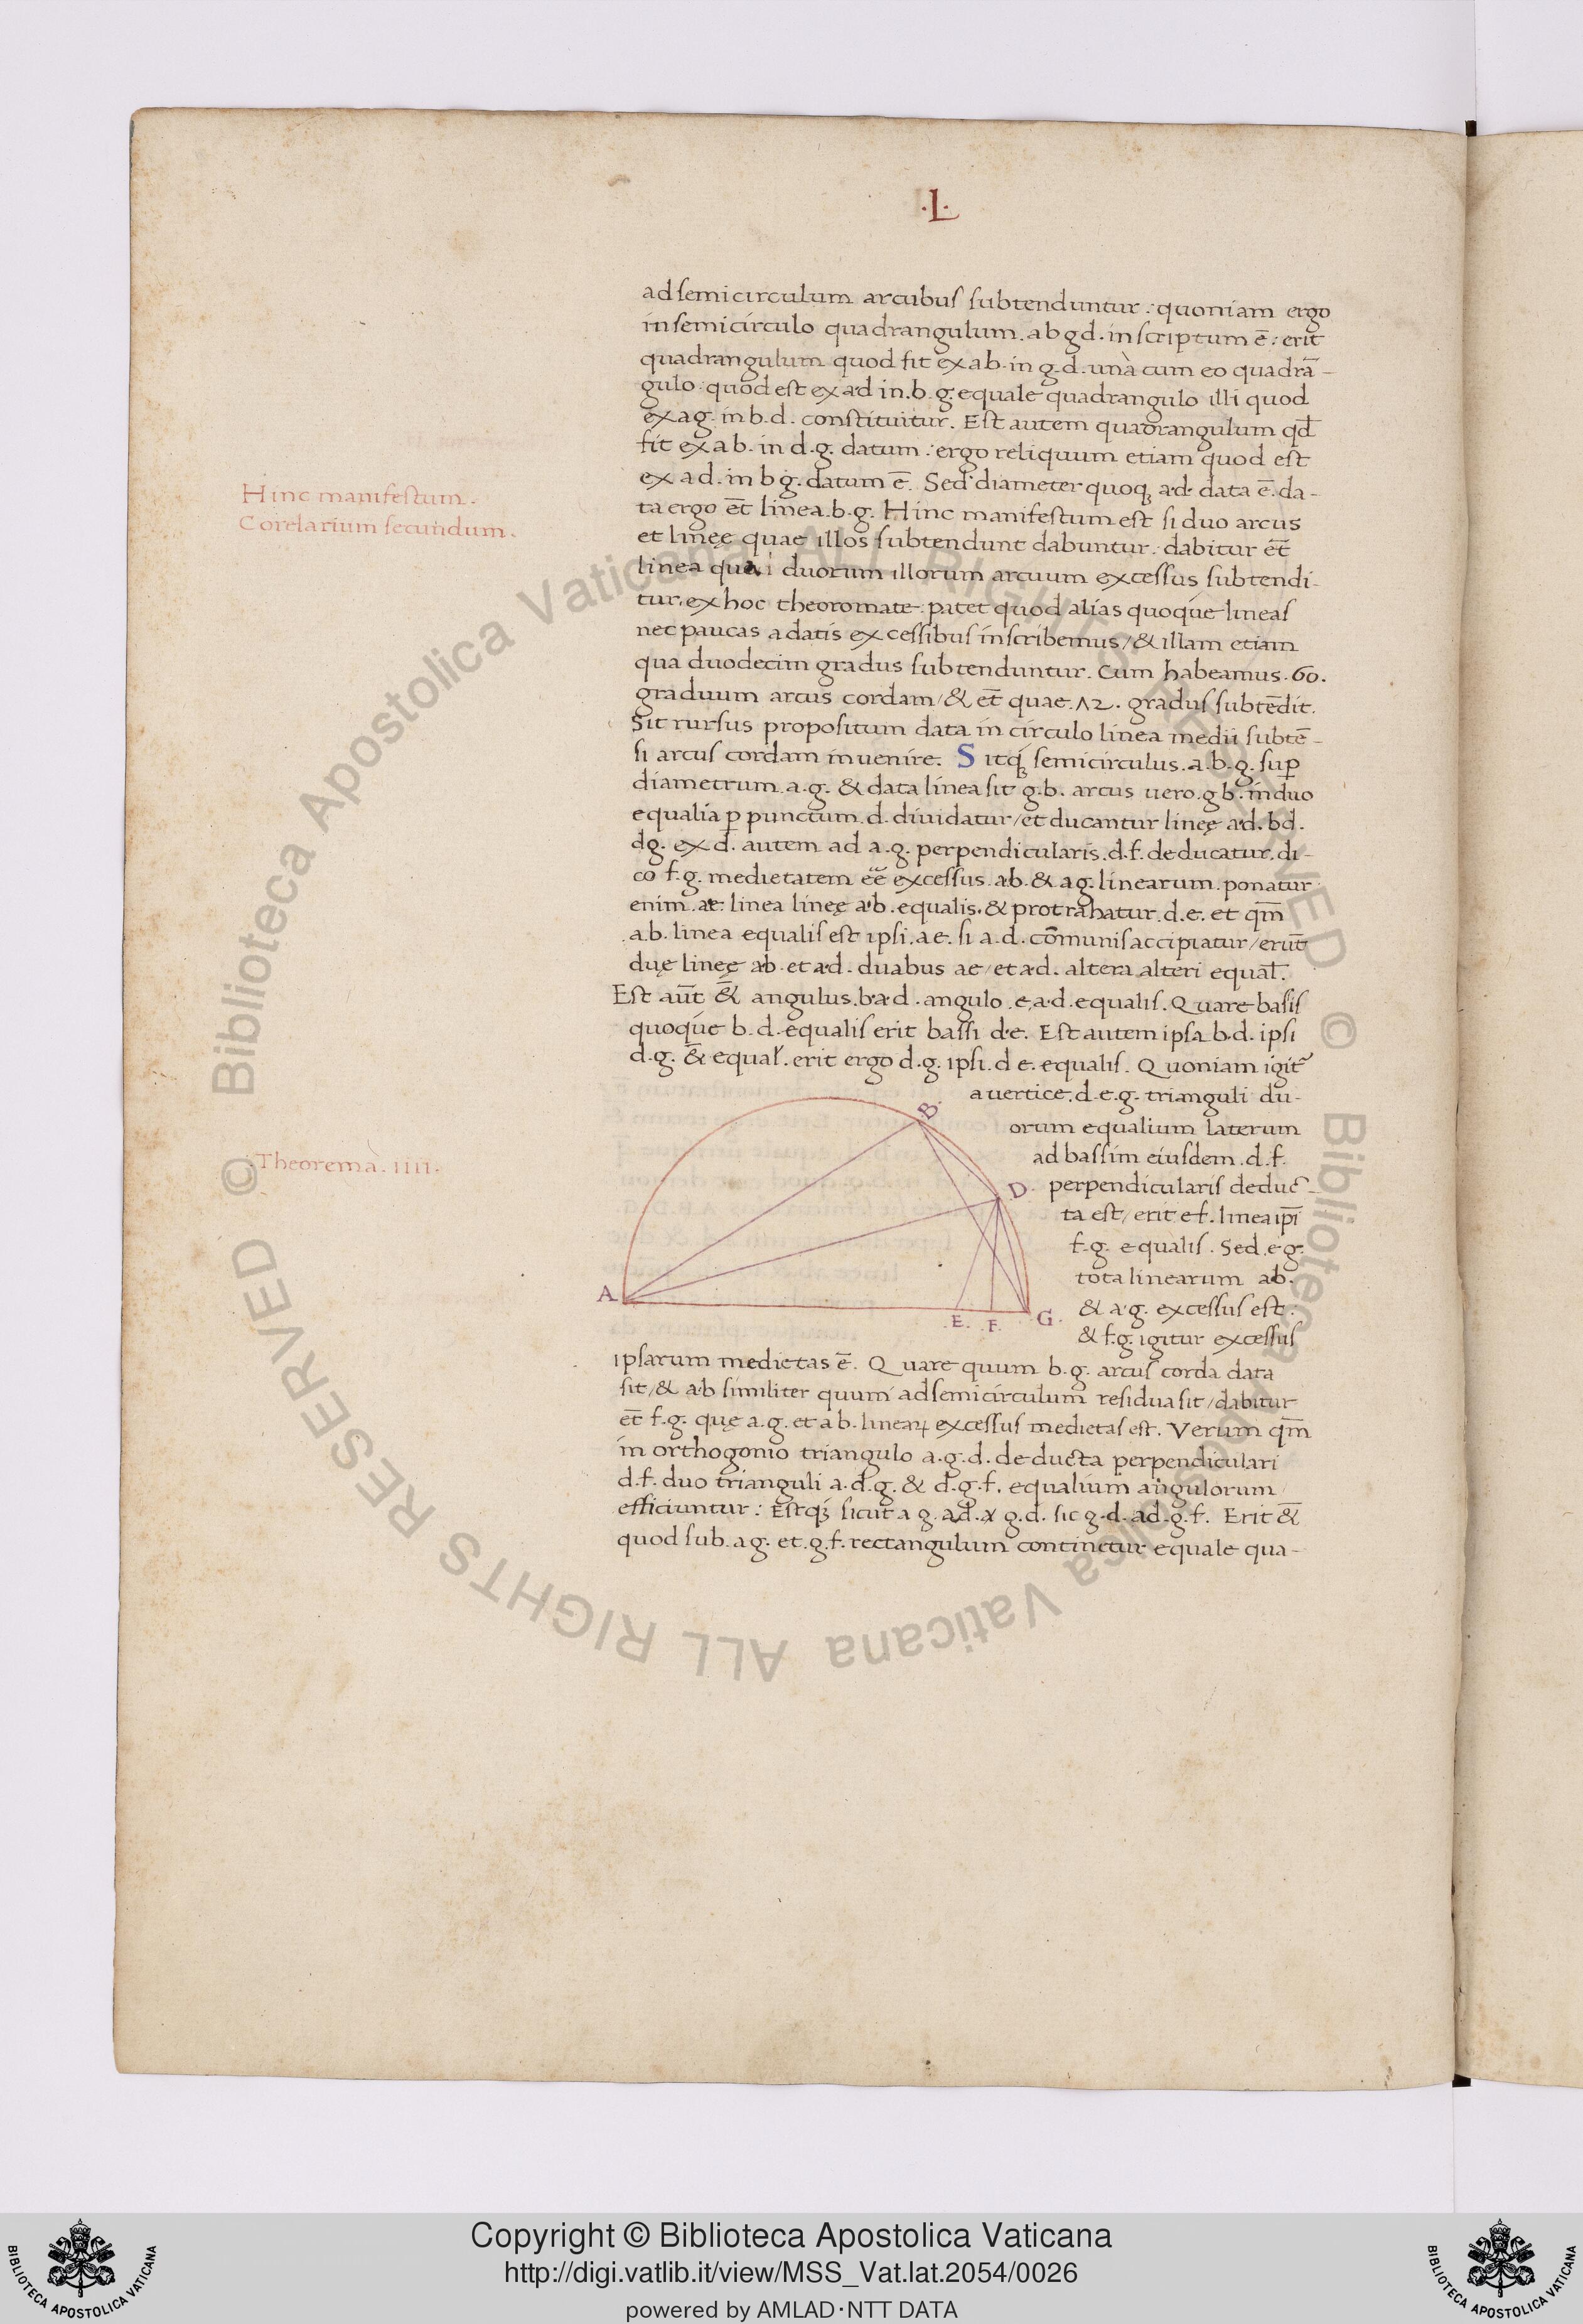 ·L·
ad semicirculum arcubus subtenduntur: quoniam ergo
in semicirculo quadrangulum. abgd. inscriptum ē: erit
quadrangulum quod fit ex ab. in g.d. unà cum eo quadrā-
gulo: quod est ex ad in. b. g. equale quadrangulo illi quod
ex ag. in b.d. constituitur. Est autem quadrangulum qd̄
fit ex ab. in d.g. datum: ergo reliquum etiam quod est
ex ad. in bg. datum ē. Sed diameter quoq; a.d. data ē. da-
ta ergo et̄ linea. b.g. Hinc manifestum est si duo arcus
Hinc manifestum.
Corelarium secundum.
et linęę quae illos subtendunt dabuntur. dabitur et̄
linea qua duorum illorum arcuum excessus subtendi-
tur. ex hoc theoromate patet quod alias quoque lineas
nec paucas a datis excessibus inscribemus/ & illam etiam
qua duodecim gradus subtenduntur. Cum habeamus. 60.
graduum arcus cordam/ & et̄ quae. 72. gradus subtēdit.
Sit rursus propositum data in circulo linea medii subtē-
si arcus cordam invenire. Sitq; semicirculus. a.b.g. sup̄
diametrum. a.g. & data linea sit g.b. arcus uero. gb. in duo
equalia ꝑ punctum. d. dividatur/ et ducantur linęę a.d. bd.
dg. ex d. autem ad a.g. perpendicularis. d.f. deducatur. di-
co f.g. medietatem eē excessus. ab. & ag. linearum. ponatur
enim. ae. linea linęę a.b. equalis. & protrahatur. d.e. et qm̄
a.b. linea equalis est ipsi. ae. si a.d. cōmunis accipiatur/ erūt
duę linęę ab. et ad. duabus ae/ et a.d. altera alteri equal̄.
Est aut̄ &̄ angulus. b.a.d. angulo. e.a.d. equalis. Quare basis
quoque b.d. equalis erit bassi d.e. Est autem ipsa b.d. ipsi
d.g. &̄ equal̄. erit ergo d.g. ipsi. d e. equalis. Quoniam igit᷑
a uertice. d.e.g. trianguli du-
orum equalium laterum
ad bassim eiusdem. d.f.
Theorema. IIII.
perpendicularis deduc-
ta est/ erit ef. linea ip̄i
f.g. equalis. Sed. e.g.
tota linearum ab.
& a.g. excessus est:
& f.g. igitur excessus
B.
D.
A
E.
F.
G.
ipsarum medietas ē. Quare quum b.g. arcus corda data
sit/ & a.b similiter quum ad semicirculum residua sit/ dabitur
et̄ f.g. quę a.g. et ab. linearꝝ excessus medietas est. Verum qm̄
in orthogonio triangulo a.g.d. deducta perpendiculari
d.f. duo trianguli a.d.g. & d.g.f. equalium angulorum
efficiuntur: Estq; sicut a g. ad. g.d. sic g.d. ad. g.f. Erit &̄
quod sub. ag. et. g.f. rectangulum continetur equale qua-
© Biblioteca Apostolica Vaticana ALL RIGHTS RESERVED © Biblioteca Apostolica Vaticana ALL RIGHTS RESERVED
BIBLIOTECA APOSTOLICA VATICANA
Copyright © Biblioteca Apostolica Vaticana
http://digi.vatlib.it/view/MSS_Vat.lat.2054/0026
powered by AMLAD·NTT DATA
BIBLIOTECA APOSTOLICA VATICANA